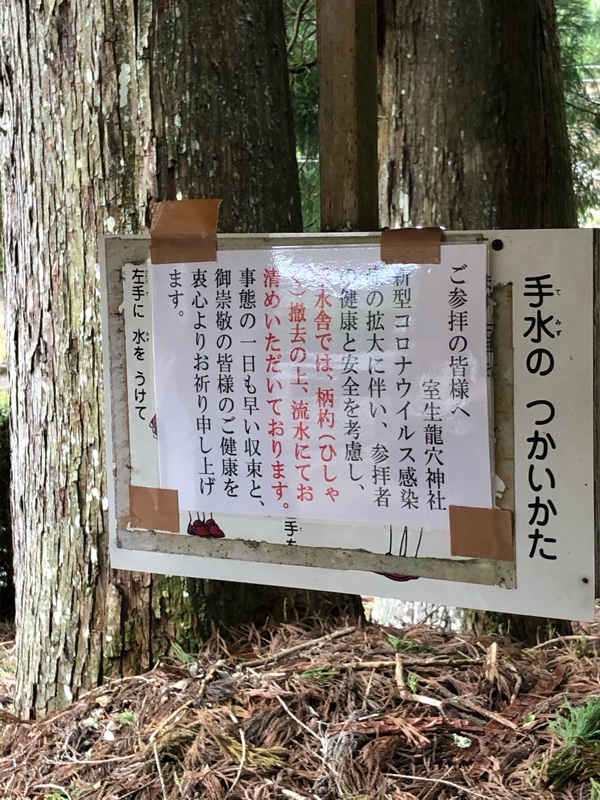 手水の つかいかた
て みず
ご参拝の皆様へ
室生龍穴神社
新型コロナウイルス感染
の拡大に伴い、参拝者
の健康と安全を考慮し、
水舎では、柄杓(ひしゃ
撤去の上、流水にてお
清めいただいております。
事態の一日も早い収束と、
御崇敬の皆様のご健康を
衷心よりお祈り申し上げ
ます。
左手に 水を うけて
手を